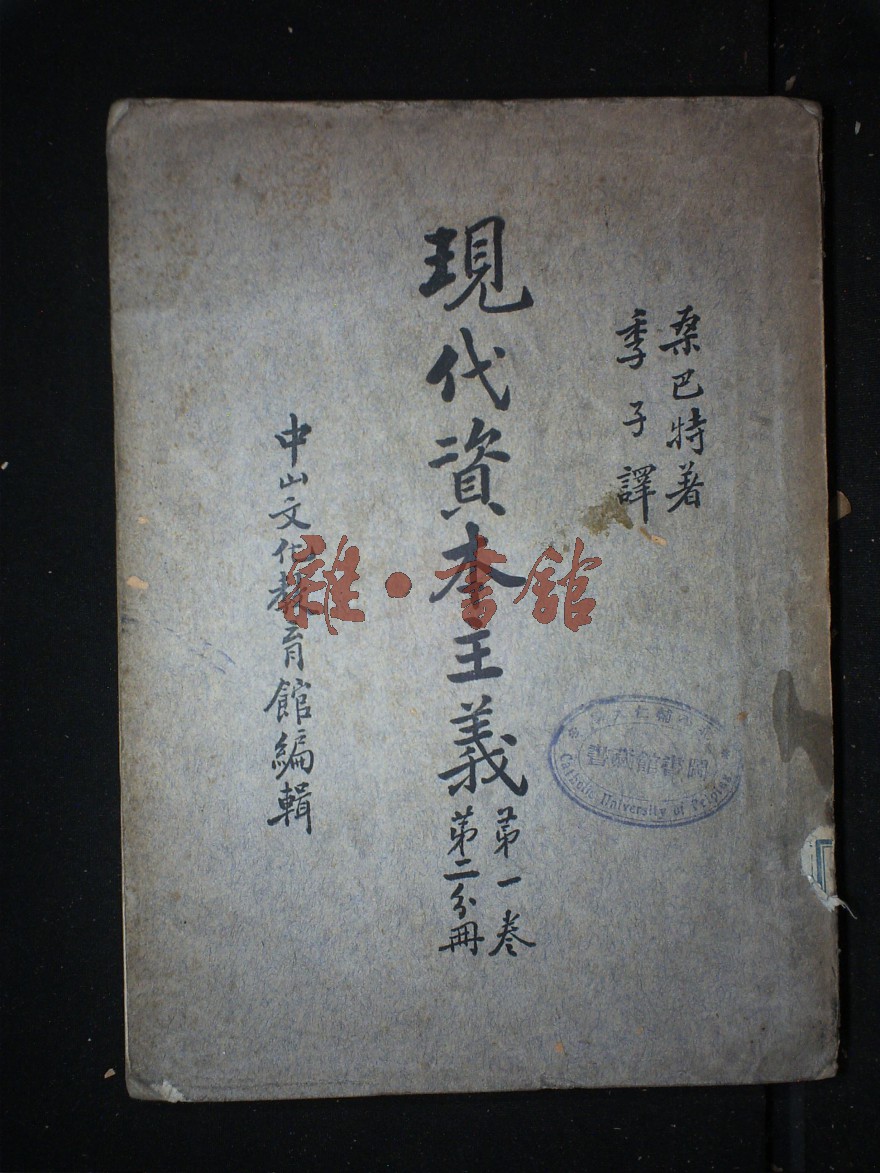 桑巴特著
季子譯
現代資本主義
第一卷
第二分冊
中山文化教育館編輯
雜·書館
圖書館藏書
Catholic University of Peking